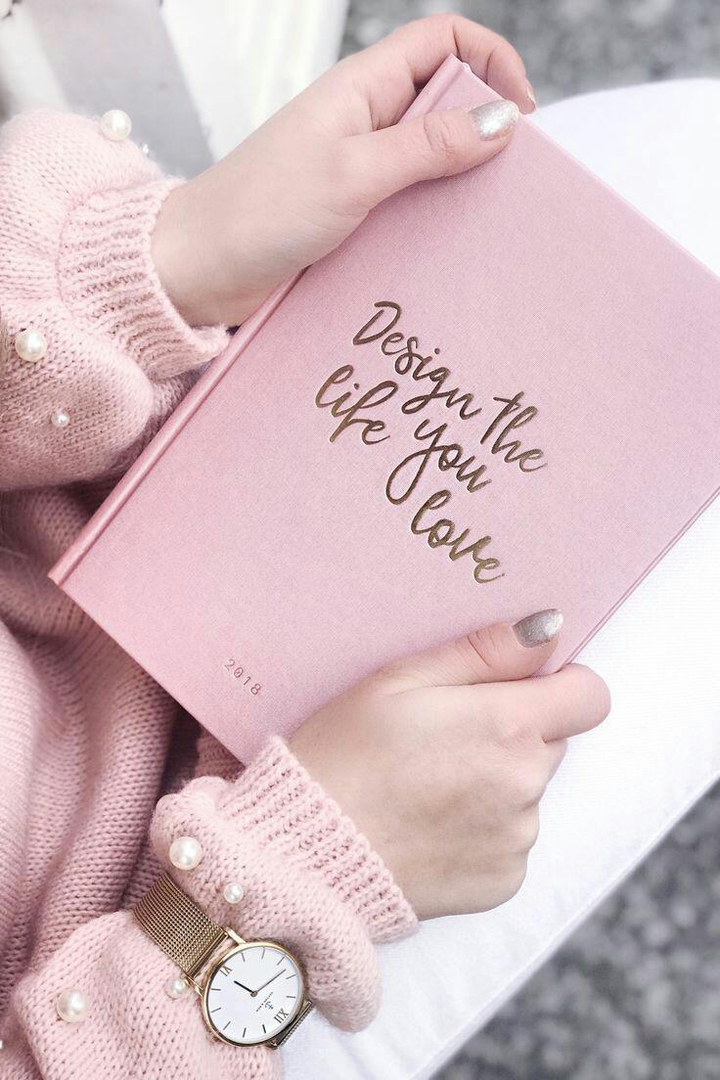 Design the
life you
love
2018
XII